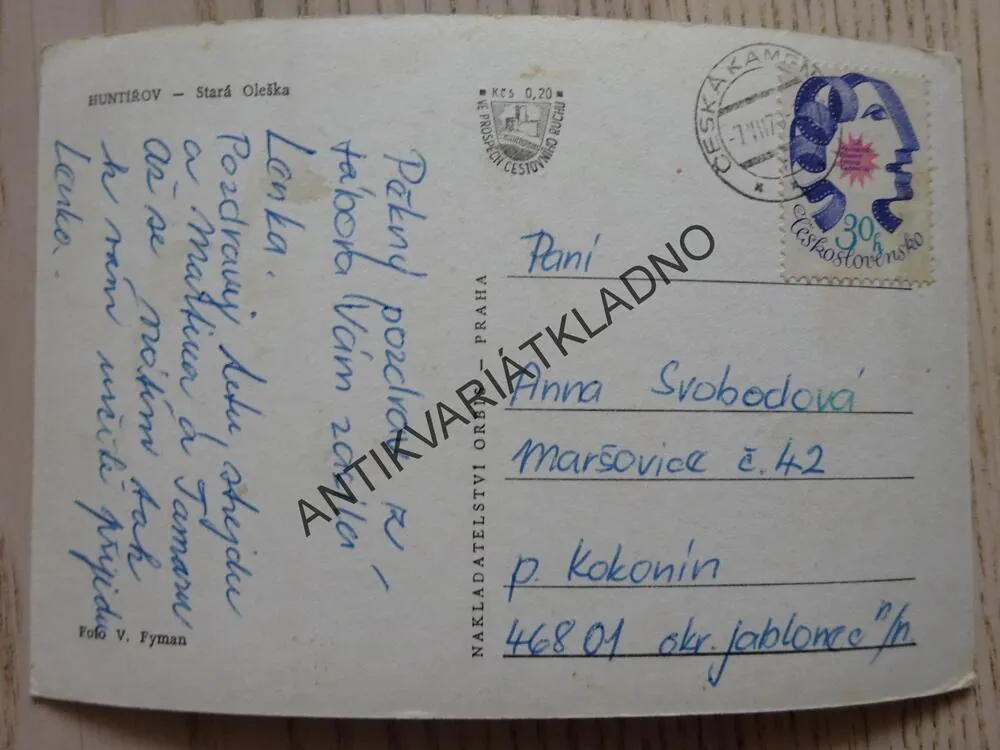 HUNTÍŘOV — Stará Oleška
Kčs 0,20
VE PROSPĚCH CESTOVNÍHO RUCHU
ČESKÁ KAMEN
30h
československo
Pěkný pozdrav z
tábora Vám zasíla
Lenka.
Pozdravuj tetu strejdu
a Martina a Tamaru
Až se vrátím tak
k vam určitě přijedu
Lenka.
Foto V. Fyman
NAKLADATELSTVÍ ORBIS — PRAHA
Paní
Anna Svobodová
Maršovice č. 42
p. Kokonín
46801 okr. jablonec n/n.
ANTIKVARIÁTKLADNO